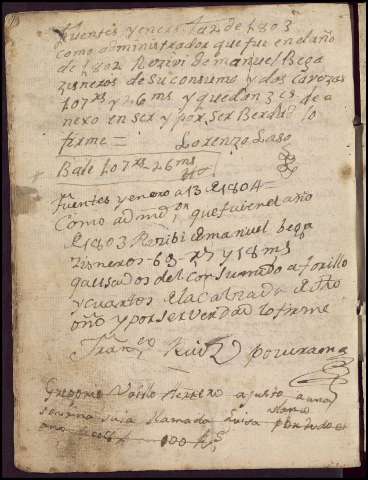 Fuentes y enero 12 de 1803
como administrador que fui en el año
de 1802 Rezivi de manuel Bega
zisneros de su consumo y dos Cavezas
107 rs y 26 ms y quedan 3 es de
nero en ser y por ser Berdad lo
firme = Lorenzo Laso
Bale 107 rs - 26 ms
fuentes y enero a 13 de 1804 =
Como admdor que fui en el año
de 1803 Rezibi de manuel bega
zisneros 63 rs y 18 ms
del consumado a forillo
y cuartos de la Cabzada de dho
año y por ser verdad lo firme
Fran co Ruiz
Gregorio Herrero a justo a una
suia llamada Luisa
100 Rs